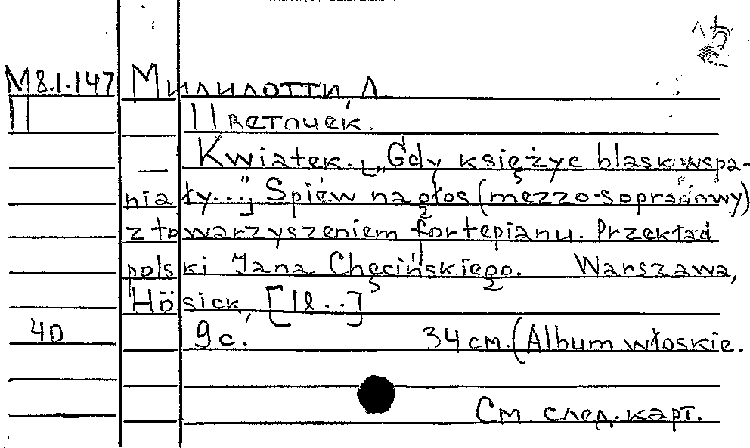 М 8.1.147 Милилотти, Л
П Цветочек.
Kwiatek. [„Gdy księżyc blask wspa-
niały..."] Śpiew na głos (mezzo-sopranowy)
z towarzyszeniem fortepianu. Przekład
polski Jana Chęcińskiego. Warszawa,
Hösick, [18..]
40 9 с. 34 см. (Album włoskie.
См. след. карт.